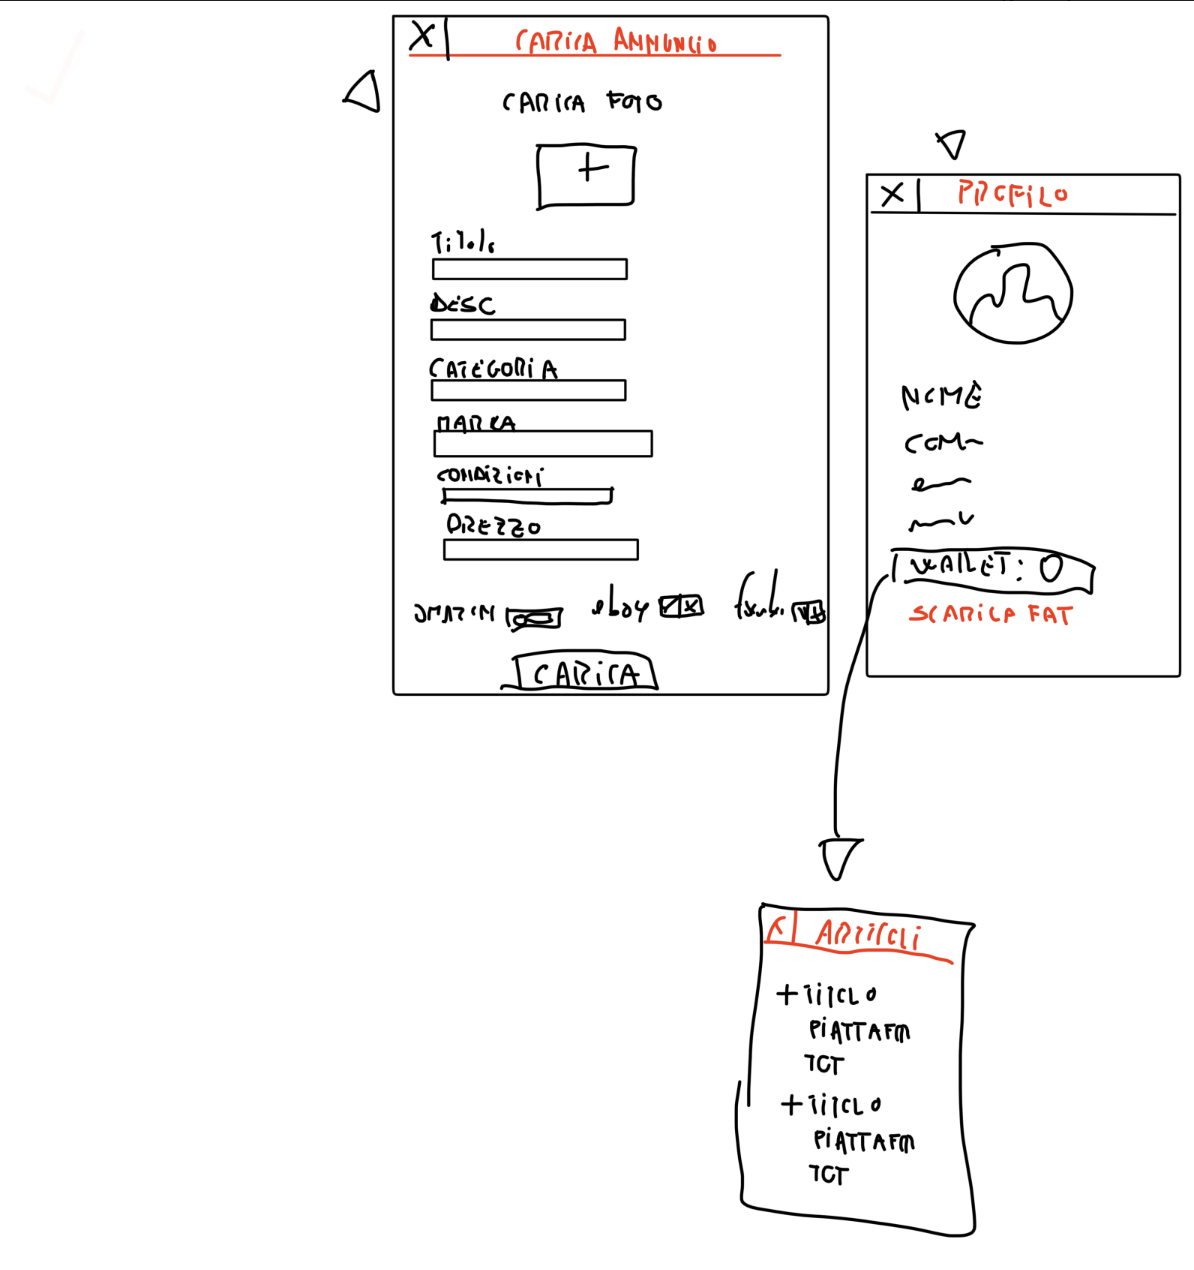 X CARICA ANNUNCIO
CARICA FOTO
+
Titolo
DESC
CATEGORIA
MARCA
CONDIZIONI
PREZZO
ebay
CARICA
X PROFILO
NOME
COM
WALLET: 0
SCARICA FAT
X ARTICOLI
+ TITOLO
PIATTAFM
TOT
+ TITOLO
PIATTAFM
TOT